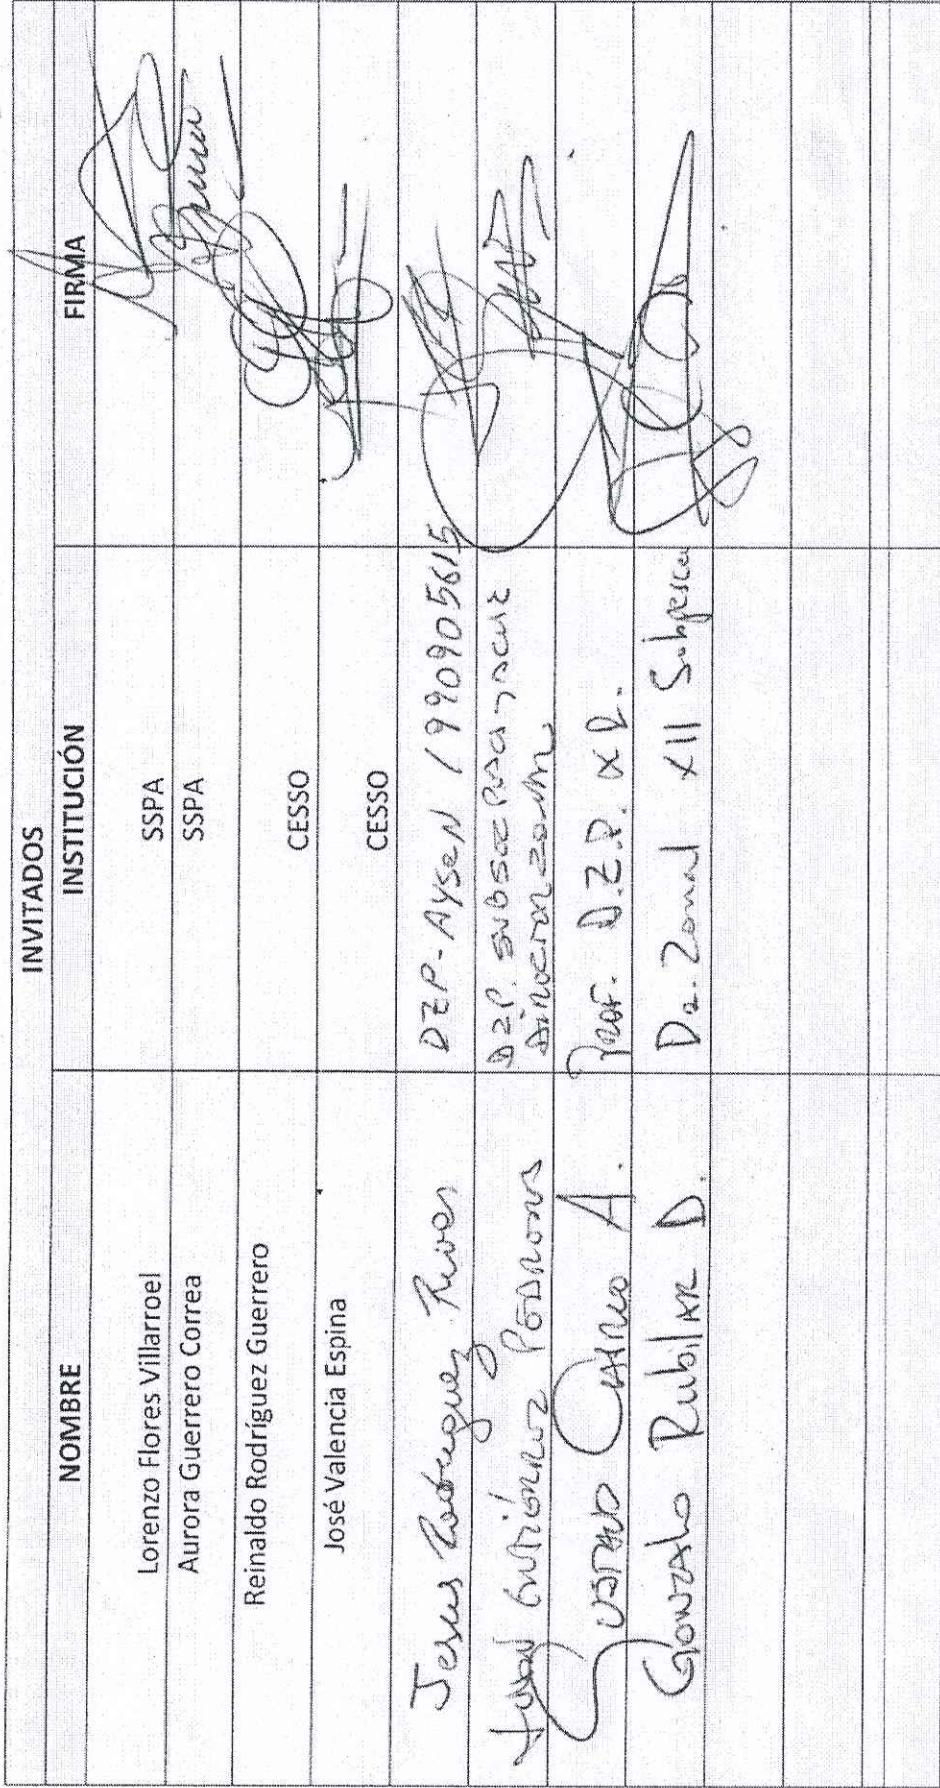 INVITADOS
NOMBRE INSTITUCIÓN FIRMA
Lorenzo Flores Villarroel SSPA
Aurora Guerrero Correa SSPA
Reinaldo Rodríguez Guerrero CESSO
José Valencia Espina CESSO
Jesus Rodriguez DZP-AYSEN / 990905615
Juan Gutiérrez DZP.
Castro A. Prof. D.Z.P. X R.
Gonzalo Rubilar D. Zonal XII Subpesca